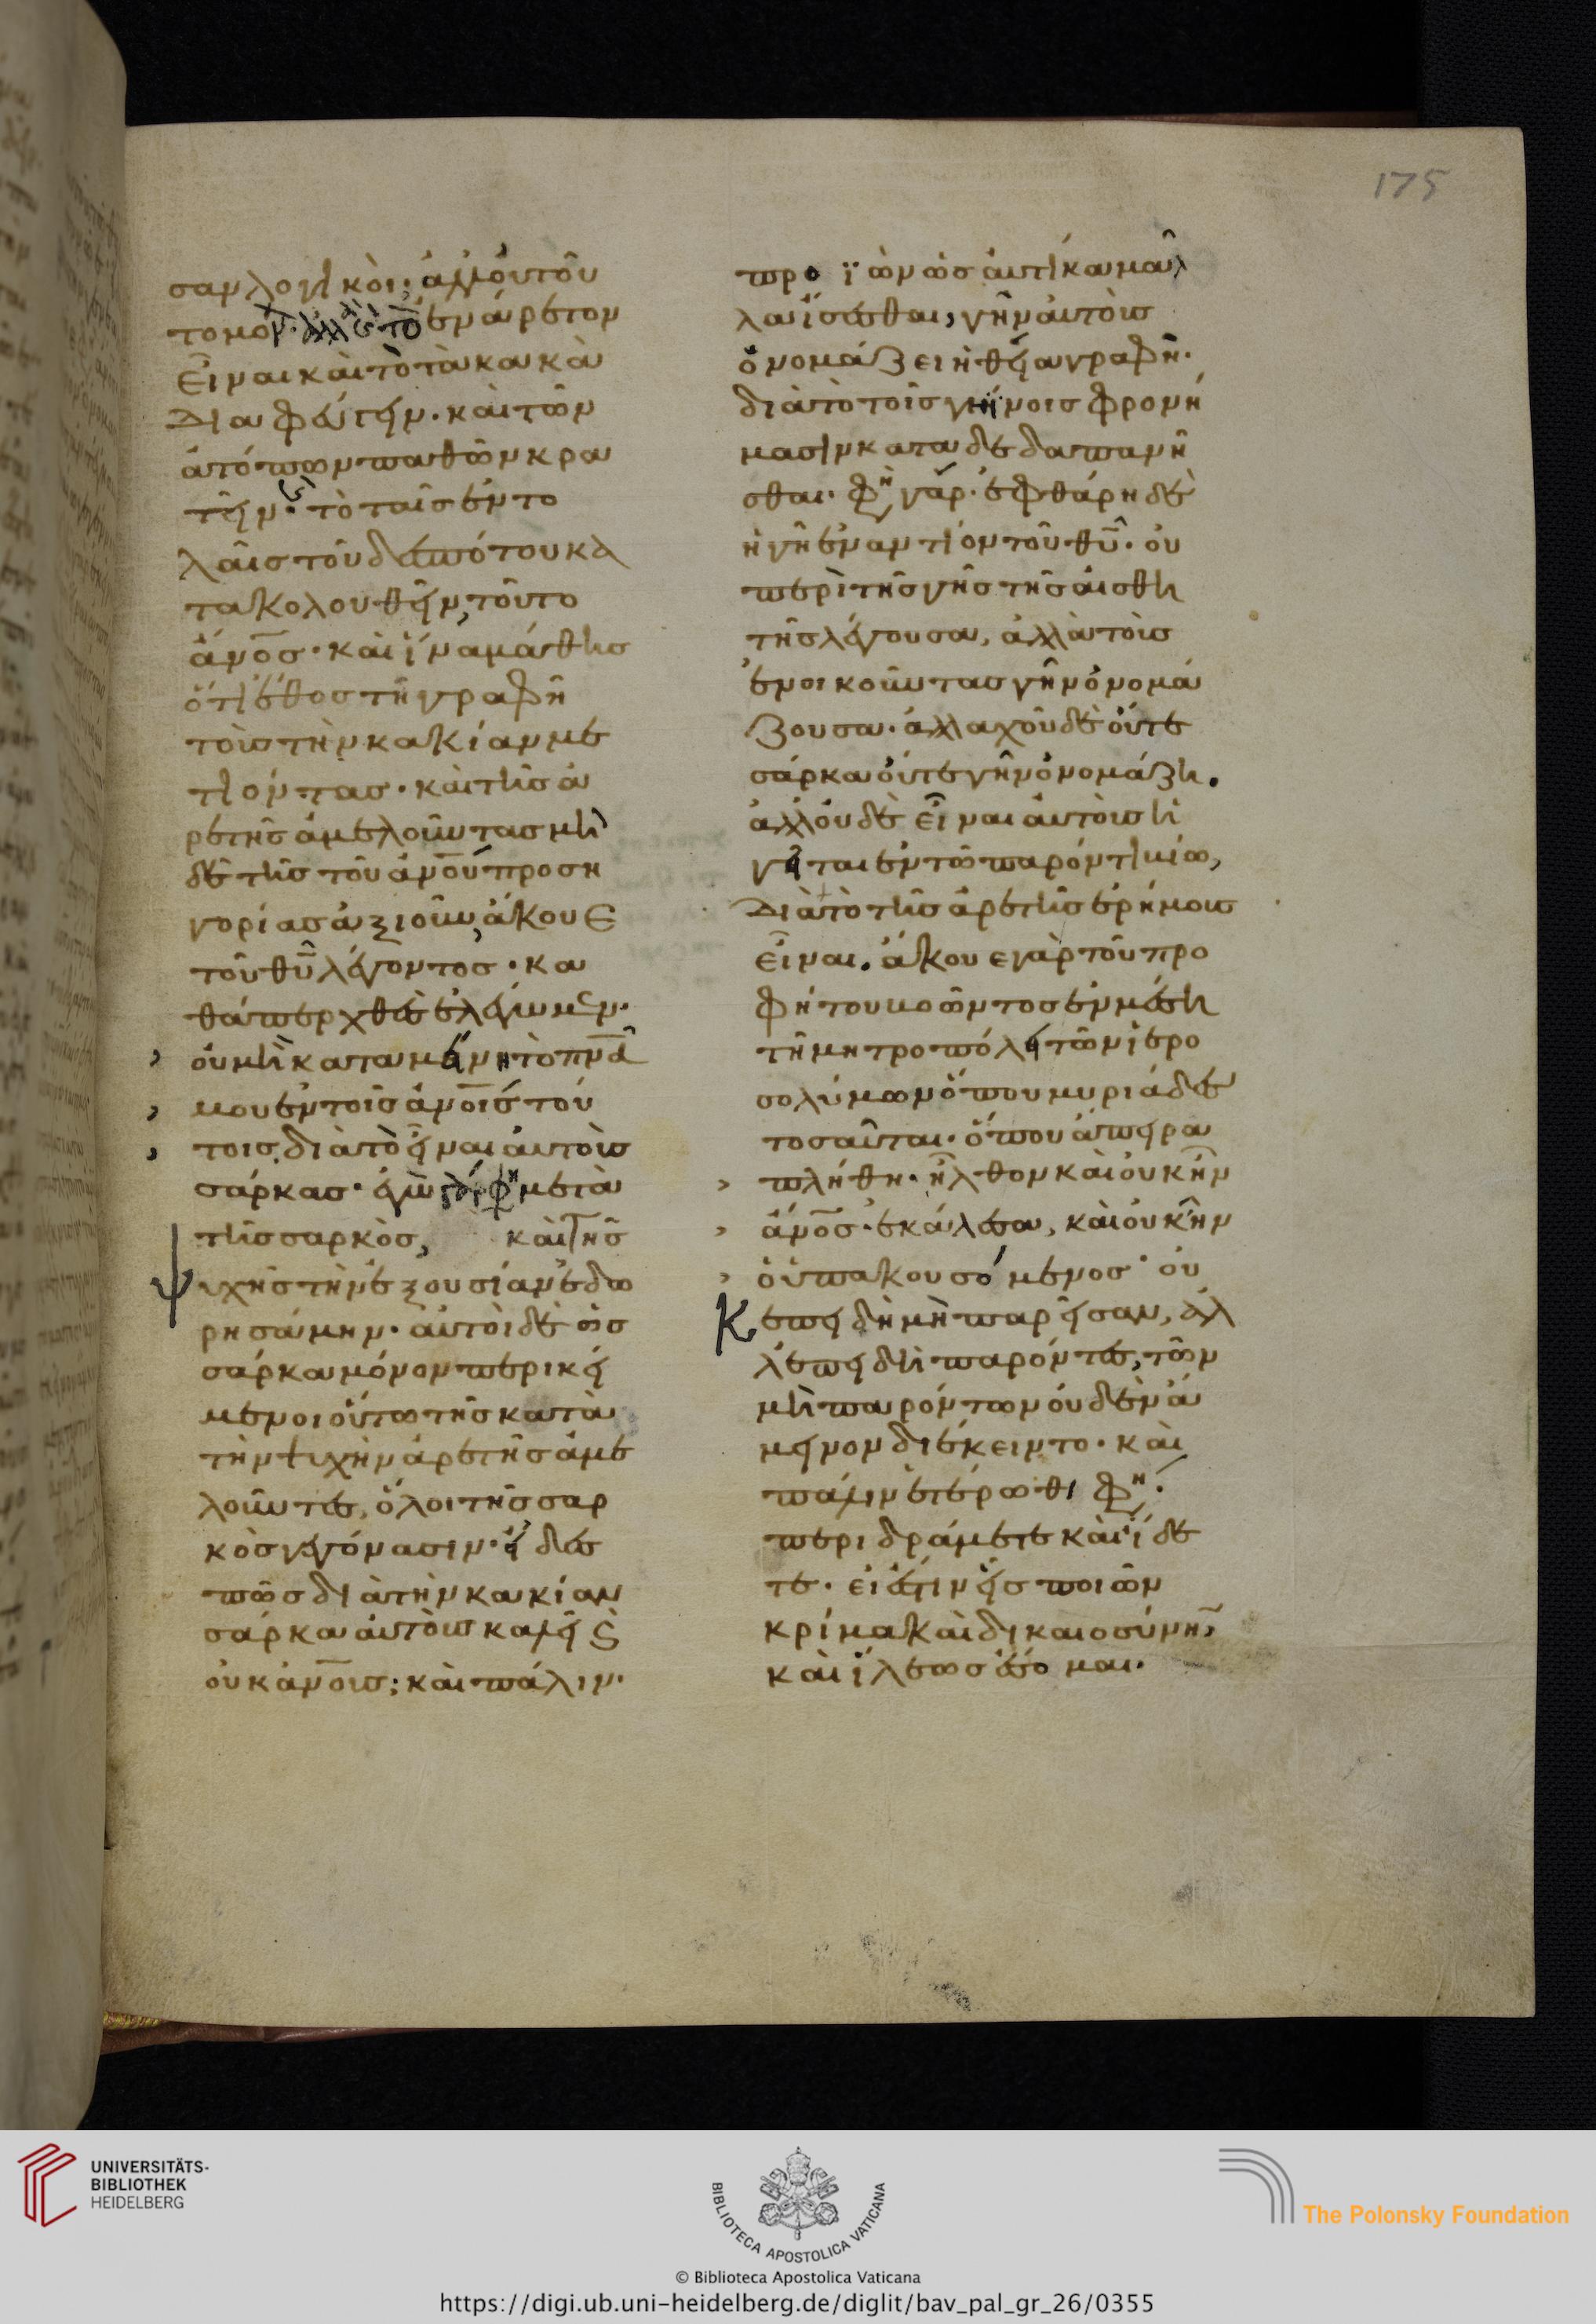 175
σαν λογικοὶ· ἀλλ' οὐ τοῦ
το μόν· ἀλλὰ ϛ τὸ ἐνάρετον
εἶναι καὶ τὸ τὰ κακὰ
διαφεύγειν· καὶ τῶν
ἀτόπων παθῶν κρα
τεῖν· ϛ τὸ ταῖς ἐντο
λαῖς τοῦ δεσπότου κα
τακολουθεῖν, τοῦτο
ἄνος· καὶ ἵνα μάθης
ὅτι ἔθος τῆ γραφῆ
τοὺς τὴν κακίαν με
τιόντας· καὶ τῆς ἀ
ρετῆς ἀμελοῦντας μη
δὲ τῆς τοῦ ἀνου προση
γορίας ἀξιοῦν, ἄκουε
τοῦ θυ λέγοντος· κα
θάπερ χθὲς ἐλέγομεν·
οὐ μὴ καταμείνη τὸ πνα
μου ἐν τοῖς ἀνοις τού
τοις, διὰ τὸ εἶναι αὐτοὺς
σάρκας· ἐγὼ φη μετὰ
τῆς σαρκὸς, καὶ τῆς
ψυχῆς τὴν ἐξουσίαν ἐδω
ρησάμην· αὐτοὶ δὲ ὡς
σάρκα μόνον περικεί
μενοι οὕτω τῆς κατὰ
τὴν ψυχὴν ἀρετῆς ἀμε
λοῦντες, ὅλοι τῆς σαρ
κὸς γεγόνασιν· εἶδες
πῶς διὰ τὴν κακίαν
σάρκα αὐτοὺς καλεῖ ϛ
οὐκ ἀνους; καὶ πάλιν·
προϊὼν ὡς αὐτίκα μα
λα εἴσεσθαι, γῆν αὐτοὺς
ὀνομάζει ἡ θεία γραφὴ·
διὰ τὸ τοῖς γηΐνοις φρονή
μασιν καταδεδαπανῆ
σθαι· φη γάρ· ἐφθάρη δὲ
ἡ γῆ ἐναντίον τοῦ θυ· οὐ
περὶ τῆς γῆς τῆς αἰσθη
τῆς λέγουσα, ἀλλὰ τοὺς
ἐνοικοῦντας γῆν ὀνομά
ζουσα· ἀλλαχοῦ δὲ οὔτε
σάρκα οὔτε γῆν ὀνομάζη.
ἀλλ' οὐδὲ εἶναι αὐτοὺς ἡ
γεῖται ἐν τῶ παρόντι βίω,
διὰ τὸ τῆς ἀρετῆς ἐρήμους
εἶναι. ἄκουε γὰρ τοῦ προ
φήτου βοῶντος ἐν μέση
τῆ μητροπόλει τῶν ἱερο
σολύμων ὅπου μυριάδες
τοσαῦται· ὅπου ἄπειρα
πλήθη· ἦλθον καὶ οὐκ ἦν
ἄνος· ἐκάλεσα, καὶ οὐκ ἦν
ὁ ὑπακουσόμενος· οὐ
κ ἐπειδὴ μὴ παρῆσαν, ἀλ
λ' ἐπειδὴ παρόντες, τῶν
μὴ παρόντων οὐδὲν ἄ
μεινον διέκειντο· καὶ
πάλιν ἑτέρωθι φη·
περιδράμετε καὶ ἴδε
τε· εἰ ἔστιν εἷς ποιῶν
κρίμα καὶ δικαιοσύνην,
καὶ ἵλεως ἔσομαι·
UNIVERSITÄTS-
BIBLIOTHEK
HEIDELBERG
BIBLIOTECA APOSTOLICA VATICANA
The Polonsky Foundation
© Biblioteca Apostolica Vaticana
https://digi.ub.uni-heidelberg.de/diglit/bav_pal_gr_26/0355